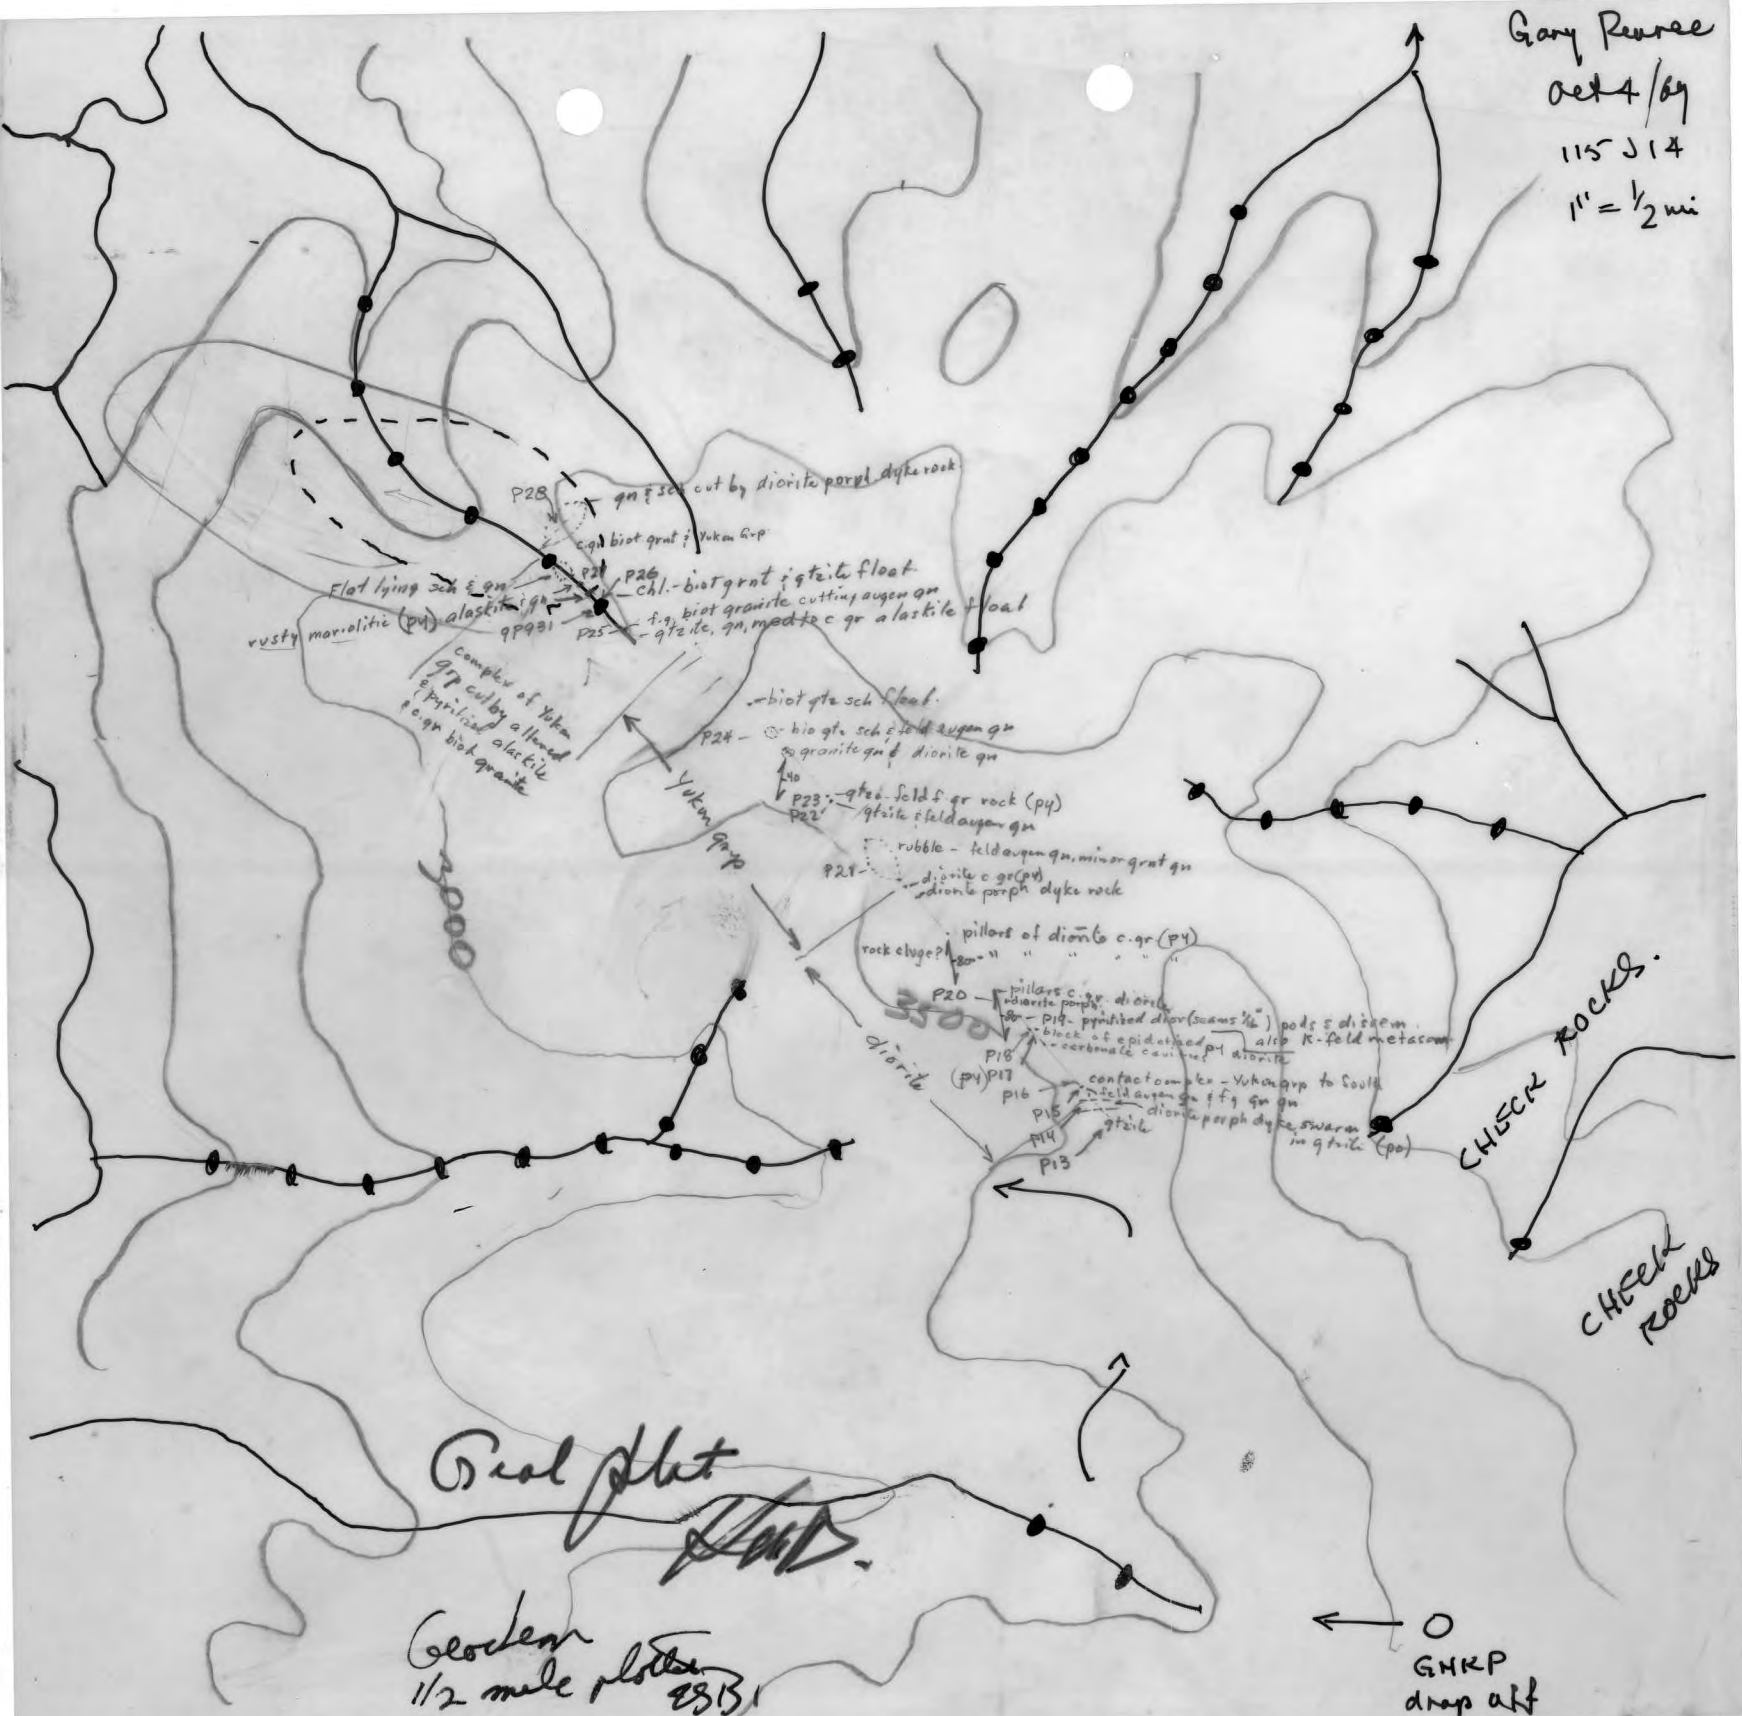 Gary
Oct 4/69
115 J 14
1" = 1/2 mi
P28
gn & sch cut by diorite porph dyke rock.
c.gn biot grnt & Yukon Grp
P27
P26
Flat lying sch & gn
chl.-biot grnt & qtzite float
rusty mariolitic (py) alaskite & gn
f.g. biot granite cutting augen gn
9P931
P25
qtzite, gn, med to c gr alaskite float
complex of Yukon
grp cut by altered
& pyritized alaskite
& c.gn biot granite
biot qtz sch float.
P24 -
bio qtz sch & feld augen gn
granite gn & diorite gn
40
P23
qtz-feld f.gr rock (py)
P22
qtzite & feld augen gn
Yukon grp
rubble - feld augen gn, minor grnt gn
P21
diorite c gr (py)
diorite porph dyke rock
3000
pillars of diorite c.gr (py)
rock sluge?
80
" " " " "
P20
pillars c.gr. diorite
diorite porph
3500
80
P19 - pyritized dior (seams 1/16") pods & dissem.
also K-feld metasom
block of epidotized py diorite
carbonate cavities
P18
(py) P17
diorite
P16
contact complex - Yukon grp to South
feld augen gn & f g gn gn
P15
diorite porph dyke swarm
in qtzite (po)
P14
qtzite
P13
CHECK ROCKS.
CHECK
ROCKS
Geol plot
Geochem
1/2 mile plotter
GHKP
drop off